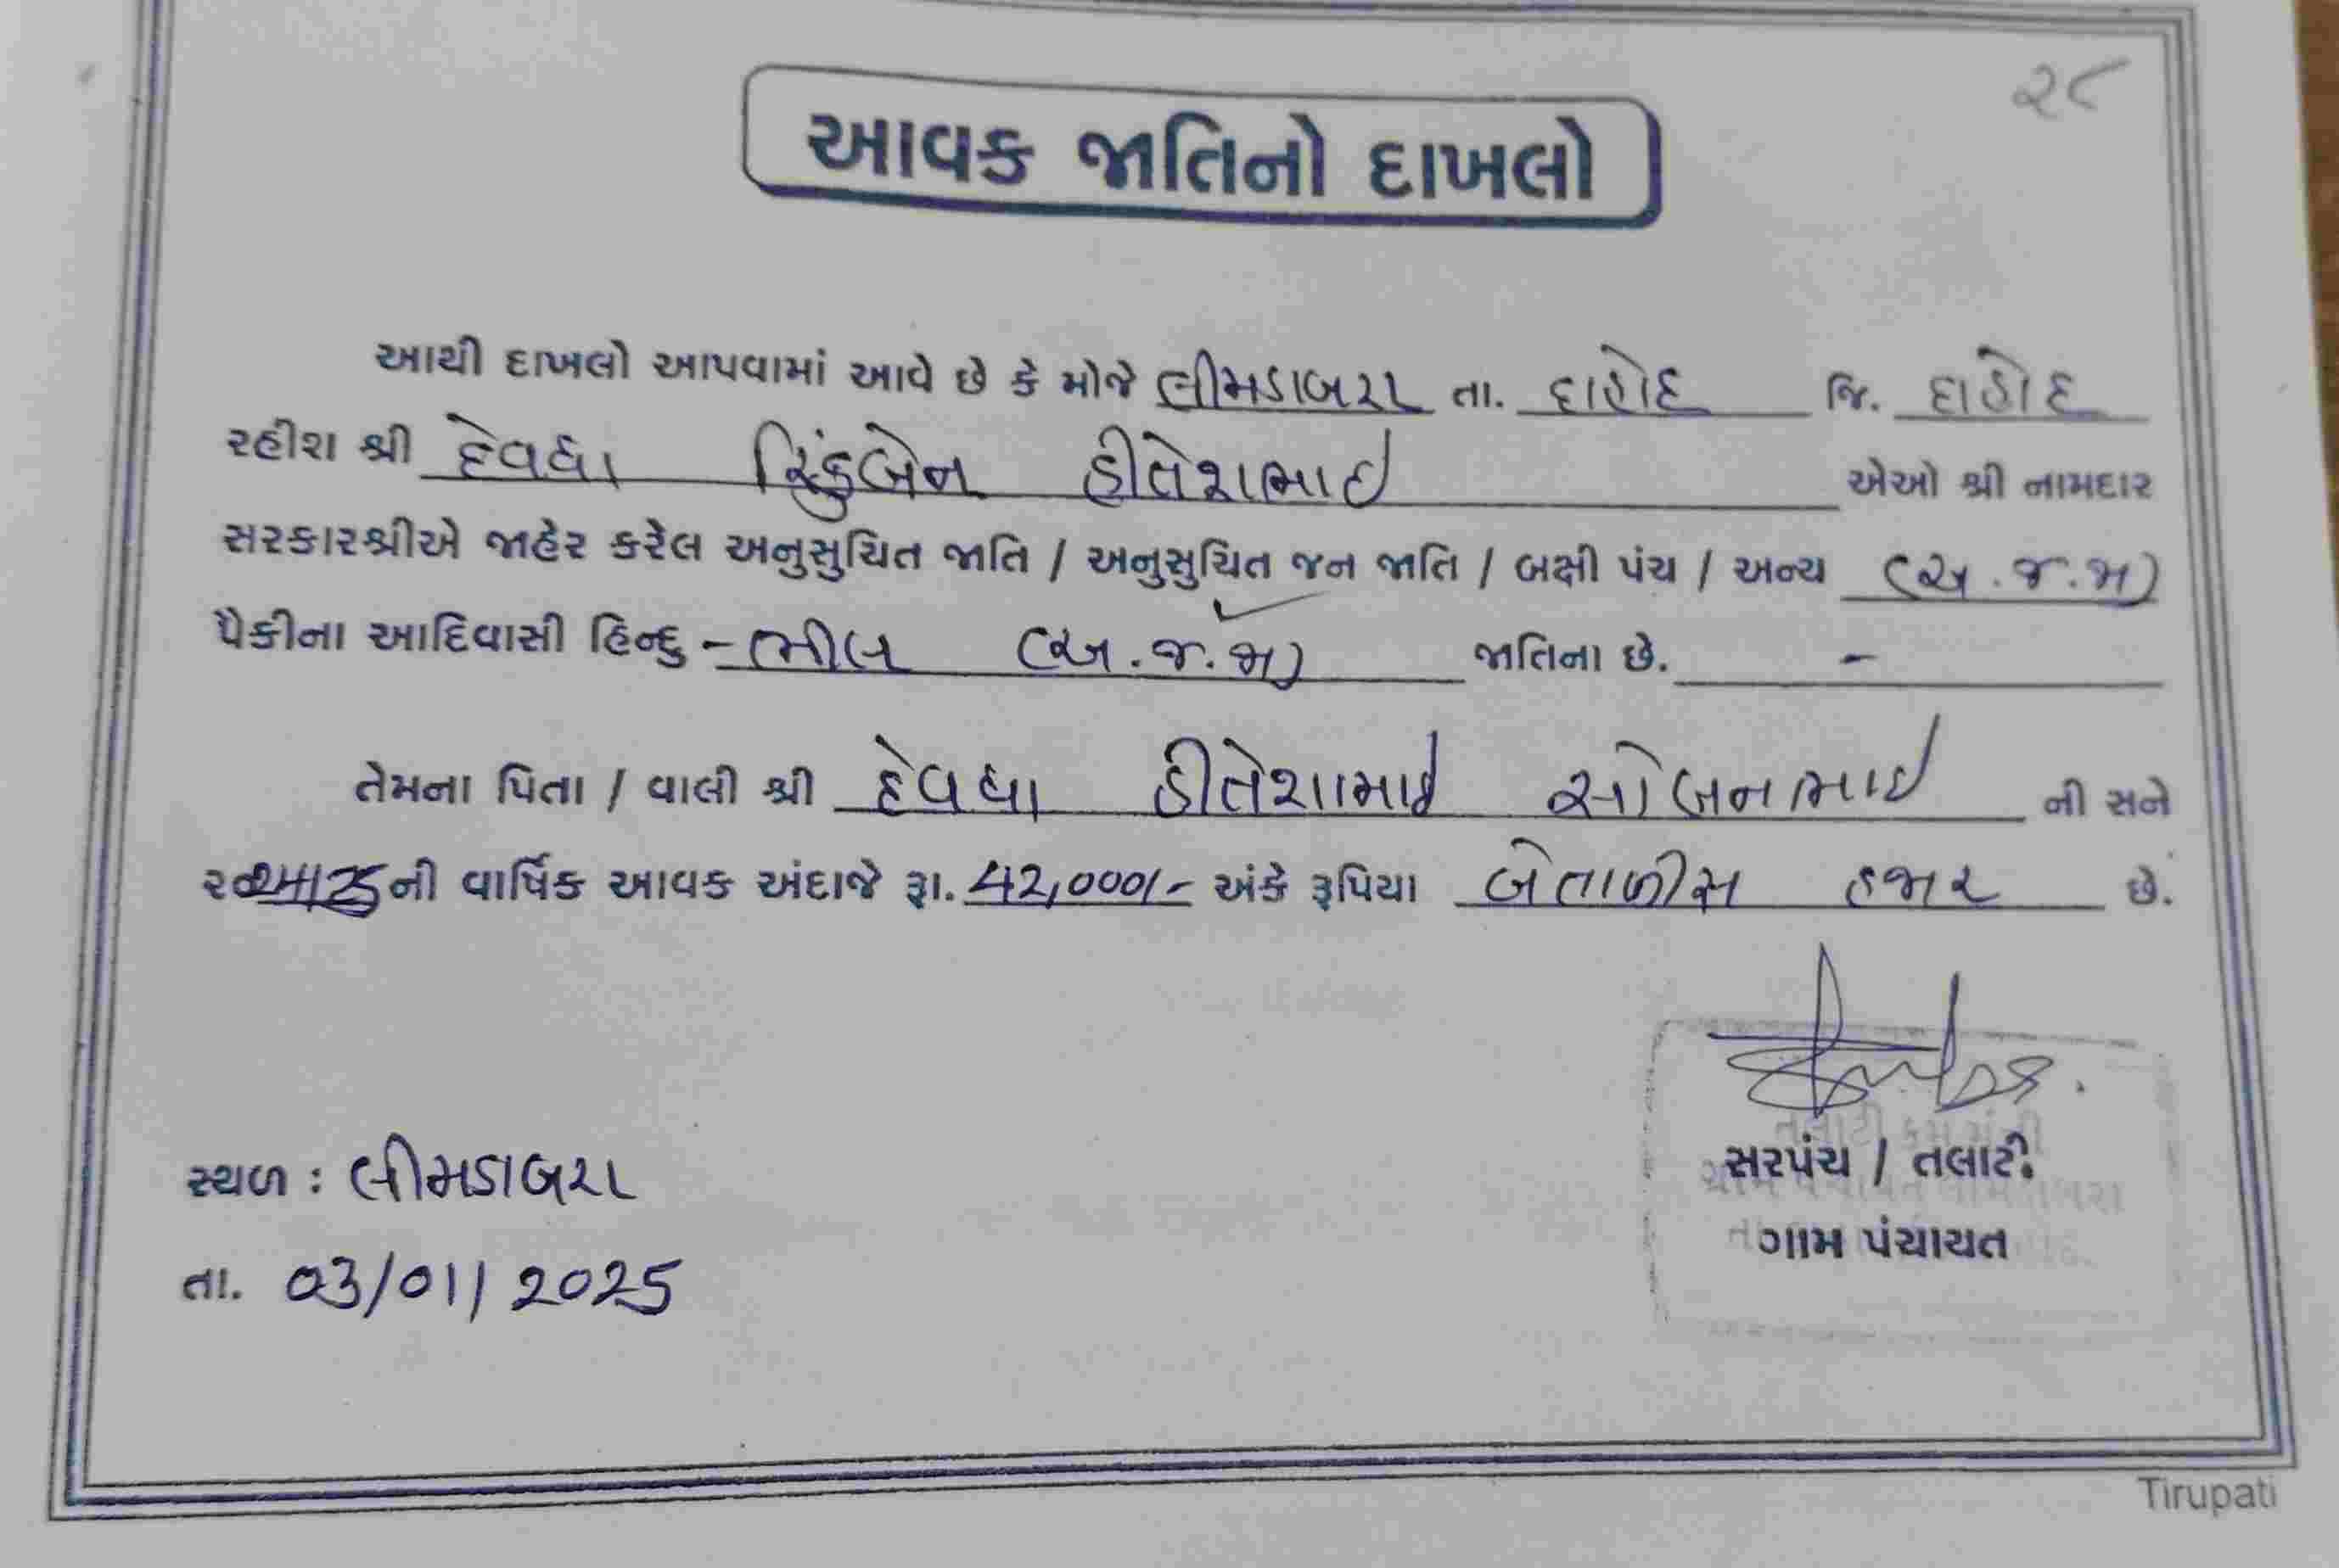 ૨૮
આવક જાતિનો દાખલો
આથી દાખલો આપવામાં આવે છે કે મોજે લીમડાબરા તા. દાહોદ જિ. દાહોદ
રહીશ શ્રી દેવધા રિંકુબેન હીતેશભાઇ એઓ શ્રી નામદાર
સરકારશ્રીએ જાહેર કરેલ અનુસુચિત જાતિ / અનુસુચિત જન જાતિ / બક્ષી પંચ / અન્ય (અ.જ.જા)
પૈકીના આદિવાસી હિન્દુ - ભીલ (અ.જ.જા) જાતિના છે. -
તેમના પિતા / વાલી શ્રી દેવધા હીતેશભાઇ સોબનભાઇ ની સને
ની વાર્ષિક આવક અંદાજે રૂા. 42,000/- અંકે રૂપિયા બેતાળીસ હજાર છે.
સરપંચ / તલાટી
ગામ પંચાયત
સ્થળ : લીમડાબરા
તા. 03/01/2025
Tirupati